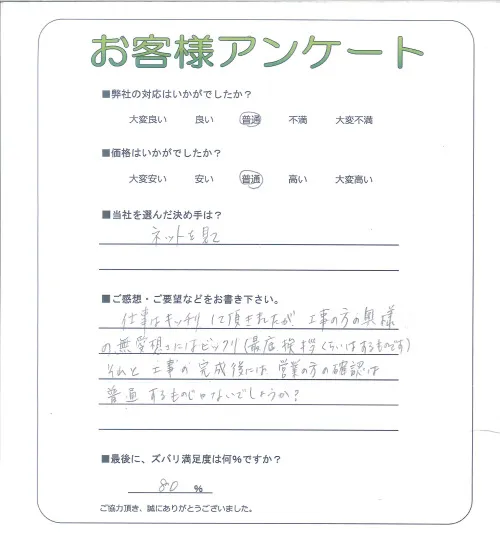 お客様アンケート
■弊社の対応はいかがでしたか？
大変良い 良い 普通 不満 大変不満
■価格はいかがでしたか？
大変安い 安い 普通 高い 大変高い
■当社を選んだ決め手は？
ネットを見て
■ご感想・ご要望などをお書き下さい。
仕事はキッチリして頂きましたが 工事の方の奥様
の無愛想さにはビックリ(最低挨拶くらいはするものです)
それと 工事の完成後には 営業の方の確認は
普通するものじゃないでしょうか?
■最後に、ズバリ満足度は何%ですか？
80 %
ご協力頂き、誠にありがとうございました。